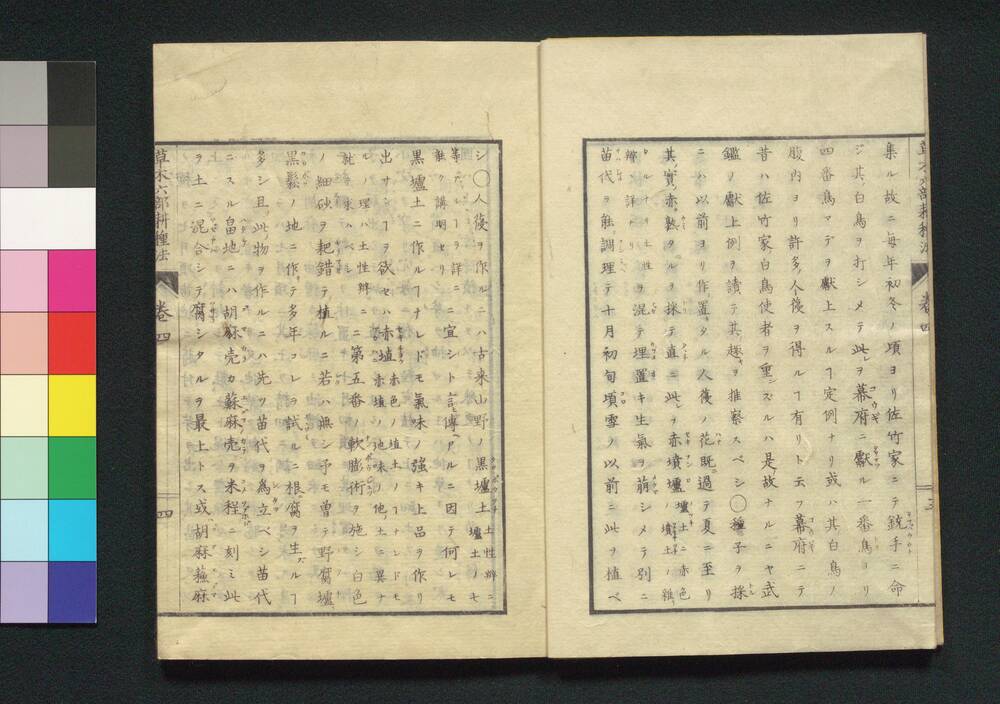 集ル故ニ毎年初冬ノ頃ヨリ佐竹家ニテ銃手ニ命
ジ其白鳥ヲ打シメテ此ヲ幕府ニ獻ル一番鳥ヨリ
四番鳥マデヲ獻上スルヿ定例ナリ或ハ其白鳥ノ
腹内ヨリ許多ノ人薓ヲ得ルヿ有リト云フ幕府ニテ
昔ハ佐竹家白鳥使者ヲ重ンズルハ是故ナルニヤ武
鑑ノ獻上例ヲ讀テ其趣ヲ推察スベシ〇種子ヲ採
ニハ以前ヨリ作置タル人薓ノ花既ニ過テ夏ニ至リ
其實赤熟タルヲ採テ直ニ此ヲ赤墳壚
壚土ニ赤色
ノ墳土ノ雜
ルナリ土性
辨ニ詳ナリ
ヲ混テ埋置キ生氣ヲ萠シメテ別ニ
苗代ヲ能調理テ十月初旬頃雪ノ以前ニ此ヲ植ベ
草木六部耕種法
卷四
シ〇人薓ヲ作ルニハ古来山野ノ黒壚土
土性辨ニ
壚土ノヿモ
ヲ詳ニ
能ク講明セリ
ニ宜シト言傳ヘアルニ因テ何レモ
黒壚土ニ作ルヿナレドモ氣味ノ強キ上品ヲ作リ
出サンヿヲ欲セバ赤埴
赤色ノ埴土ノヿナレドモ
赤埴ノ地味ノ他ノ土ニ異ナ
ルノ理ハ土性辨ニ
就テ求ムベシ
ニ第五番ノ軟膨術ヲ施シ白色
ノ細砂ヲ耙錯テ植ルニ若ハ無シ予モ曽テ野腐壚
黒鬆ノ地ニ作テ多年コレヲ試ルニ根腐ヲ生ズルヿ
多シ且此物ヲ作ルニハ先ツ苗代ヲ為立ベシ苗代
ニスル畠地ニハ胡麻壳カ蘇麻壳ヲ米程ニ刻ミ此
ヲ土ニ混合シテ腐シタルヲ最上トス或胡麻蘓麻
草木六部耕種法
卷四
四